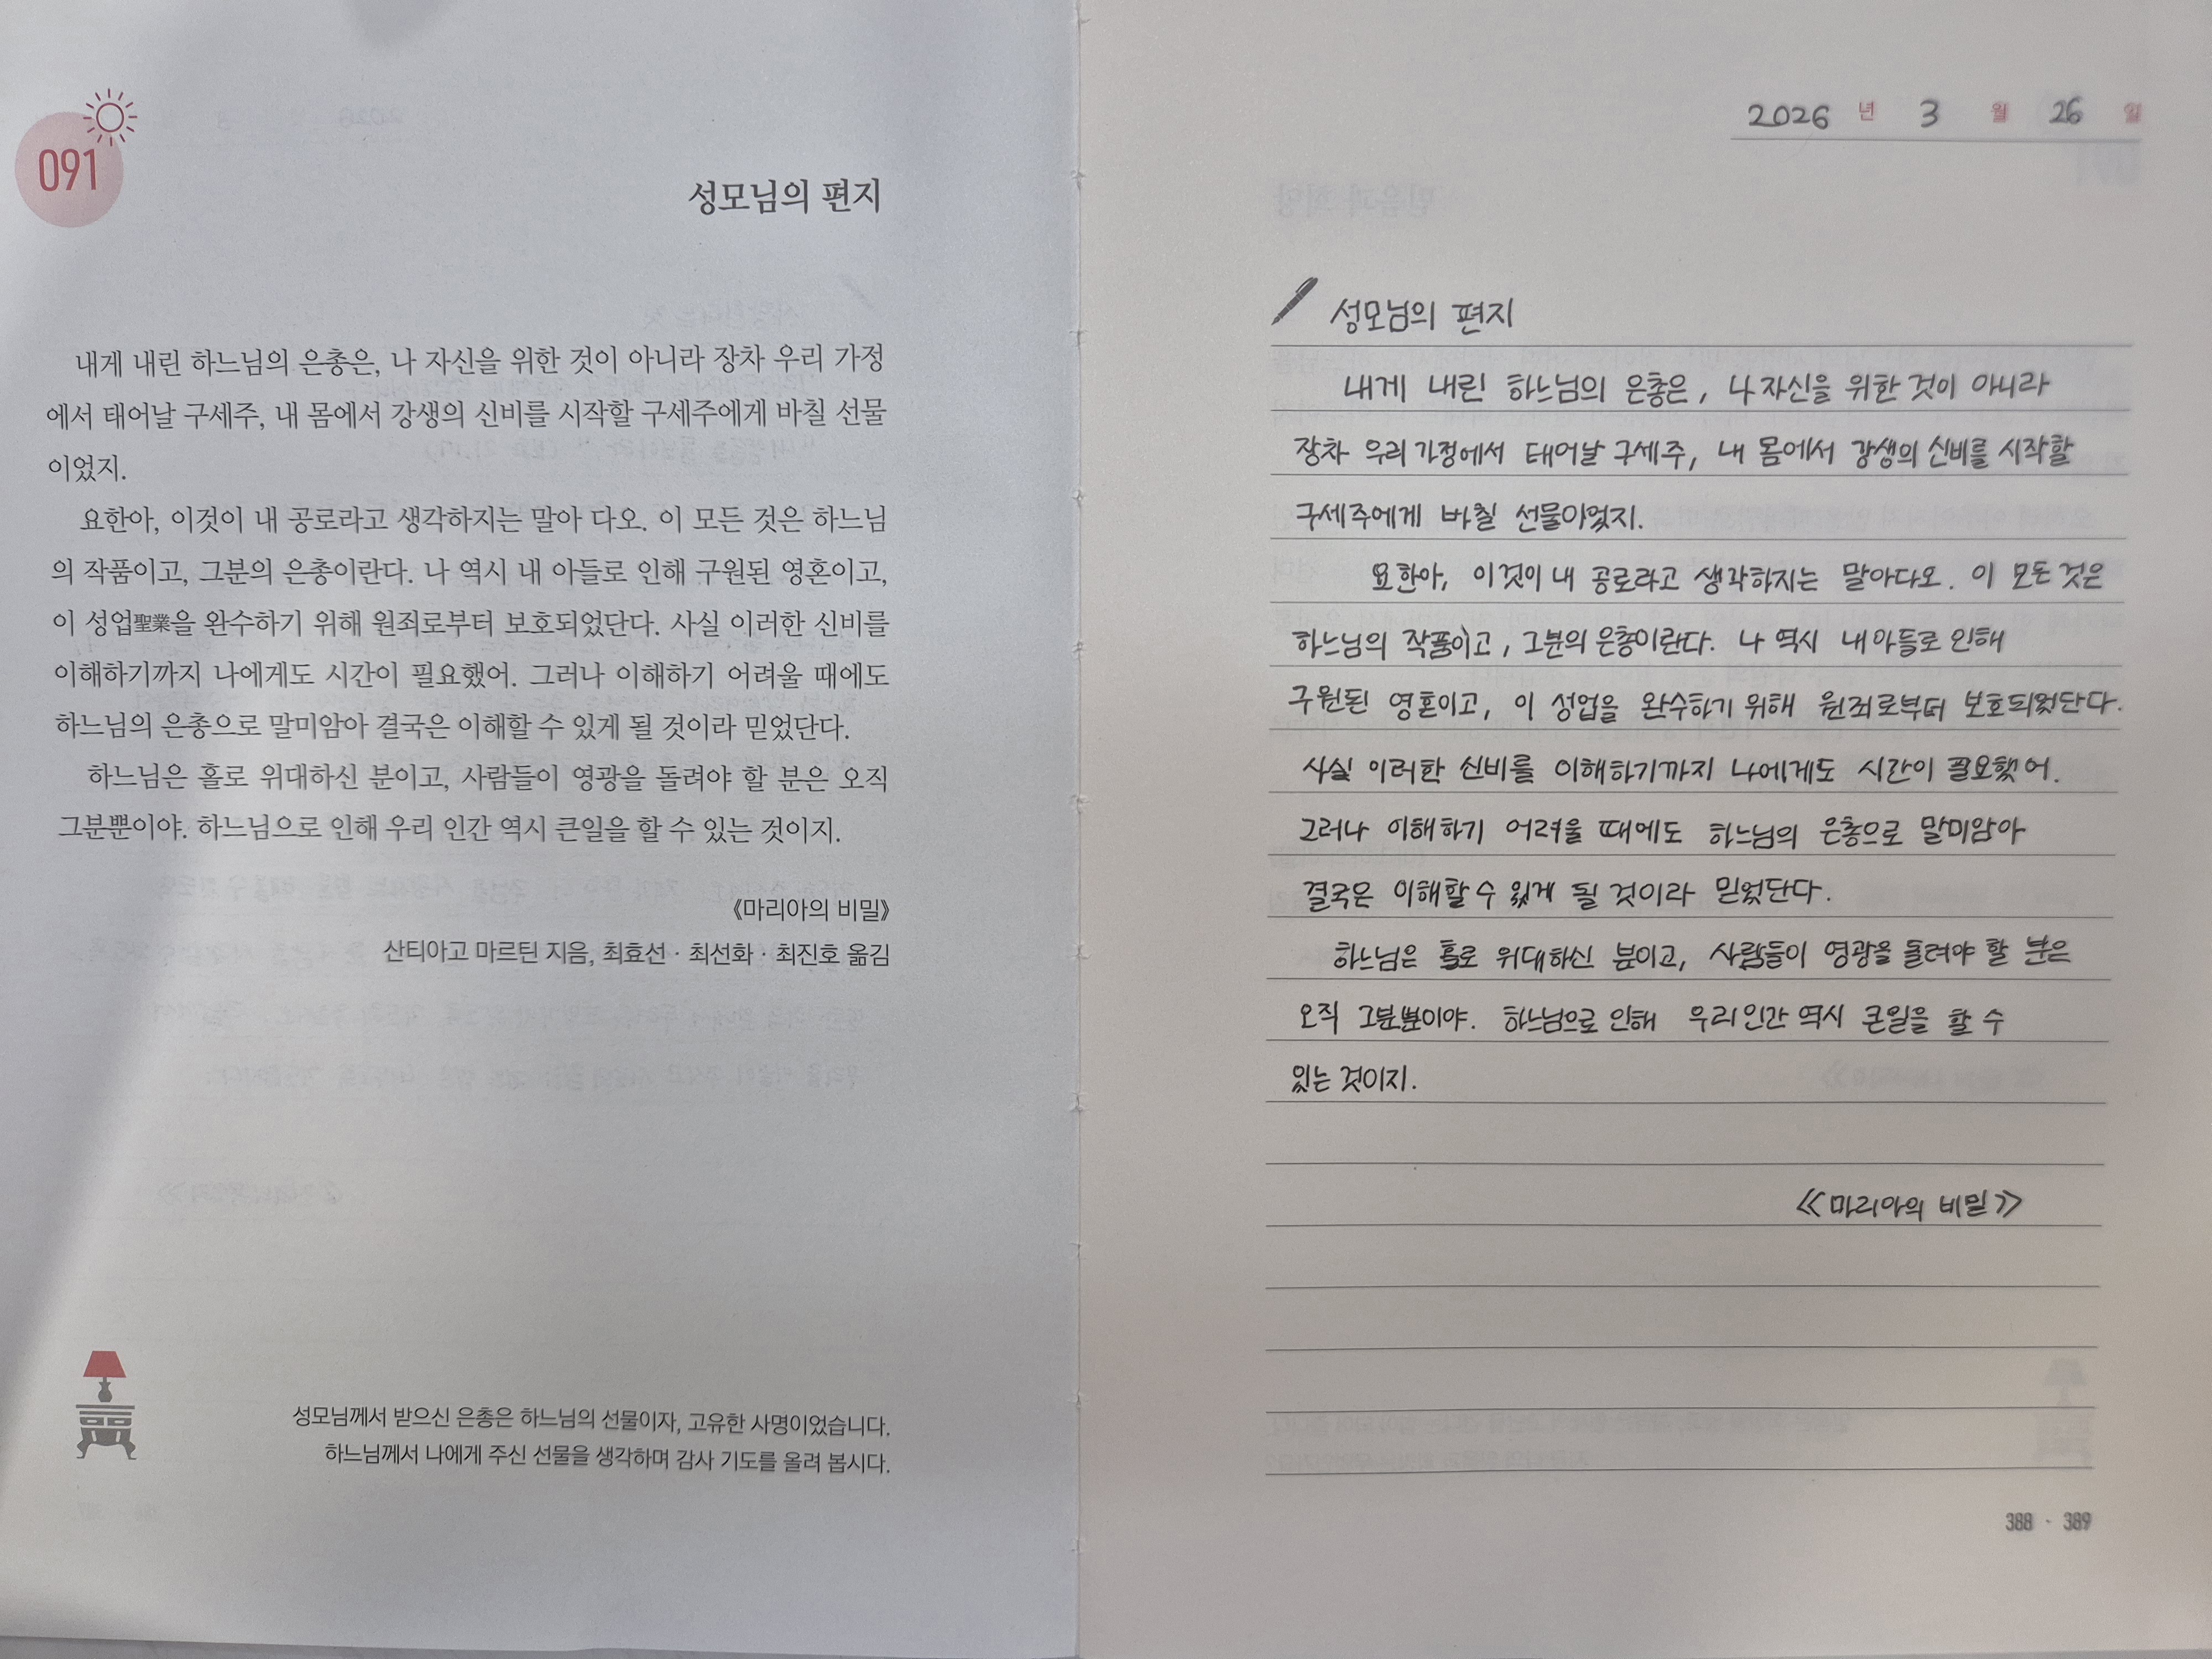 091
성모님의 편지
내게 내린 하느님의 은총은, 나 자신을 위한 것이 아니라 장차 우리 가정
에서 태어날 구세주, 내 몸에서 강생의 신비를 시작할 구세주에게 바칠 선물
이었지.
요한아, 이것이 내 공로라고 생각하지는 말아 다오. 이 모든 것은 하느님
의 작품이고, 그분의 은총이란다. 나 역시 내 아들로 인해 구원된 영혼이고,
이 성업聖業을 완수하기 위해 원죄로부터 보호되었단다. 사실 이러한 신비를
이해하기까지 나에게도 시간이 필요했어. 그러나 이해하기 어려울 때에도
하느님의 은총으로 말미암아 결국은 이해할 수 있게 될 것이라 믿었단다.
하느님은 홀로 위대하신 분이고, 사람들이 영광을 돌려야 할 분은 오직
그분뿐이야. 하느님으로 인해 우리 인간 역시 큰일을 할 수 있는 것이지.
《마리아의 비밀》
산티아고 마르틴 지음, 최효선 · 최선화 · 최진호 옮김
성모님께서 받으신 은총은 하느님의 선물이자, 고유한 사명이었습니다.
하느님께서 나에게 주신 선물을 생각하며 감사 기도를 올려 봅시다.
2026 년 3 월 26 일
성모님의 편지
내게 내린 하느님의 은총은, 나 자신을 위한 것이 아니라
장차 우리 가정에서 태어날 구세주, 내 몸에서 강생의 신비를 시작할
구세주에게 바칠 선물이었지.
요한아, 이것이 내 공로라고 생각하지는 말아다오. 이 모든 것은
하느님의 작품이고, 그분의 은총이란다. 나 역시 내 아들로 인해
구원된 영혼이고, 이 성업을 완수하기 위해 원죄로부터 보호되었단다.
사실 이러한 신비를 이해하기까지 나에게도 시간이 필요했어.
그러나 이해하기 어려울 때에도 하느님의 은총으로 말미암아
결국은 이해할 수 있게 될 것이라 믿었단다.
하느님은 홀로 위대하신 분이고, 사람들이 영광을 돌려야 할 분은
오직 그분뿐이야. 하느님으로 인해 우리 인간 역시 큰일을 할 수
있는 것이지.
《마리아의 비밀》
388 · 389